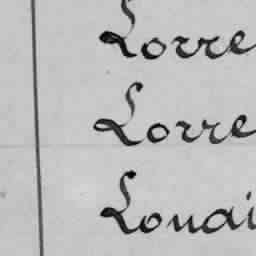 Lorre
Lorre
Louai